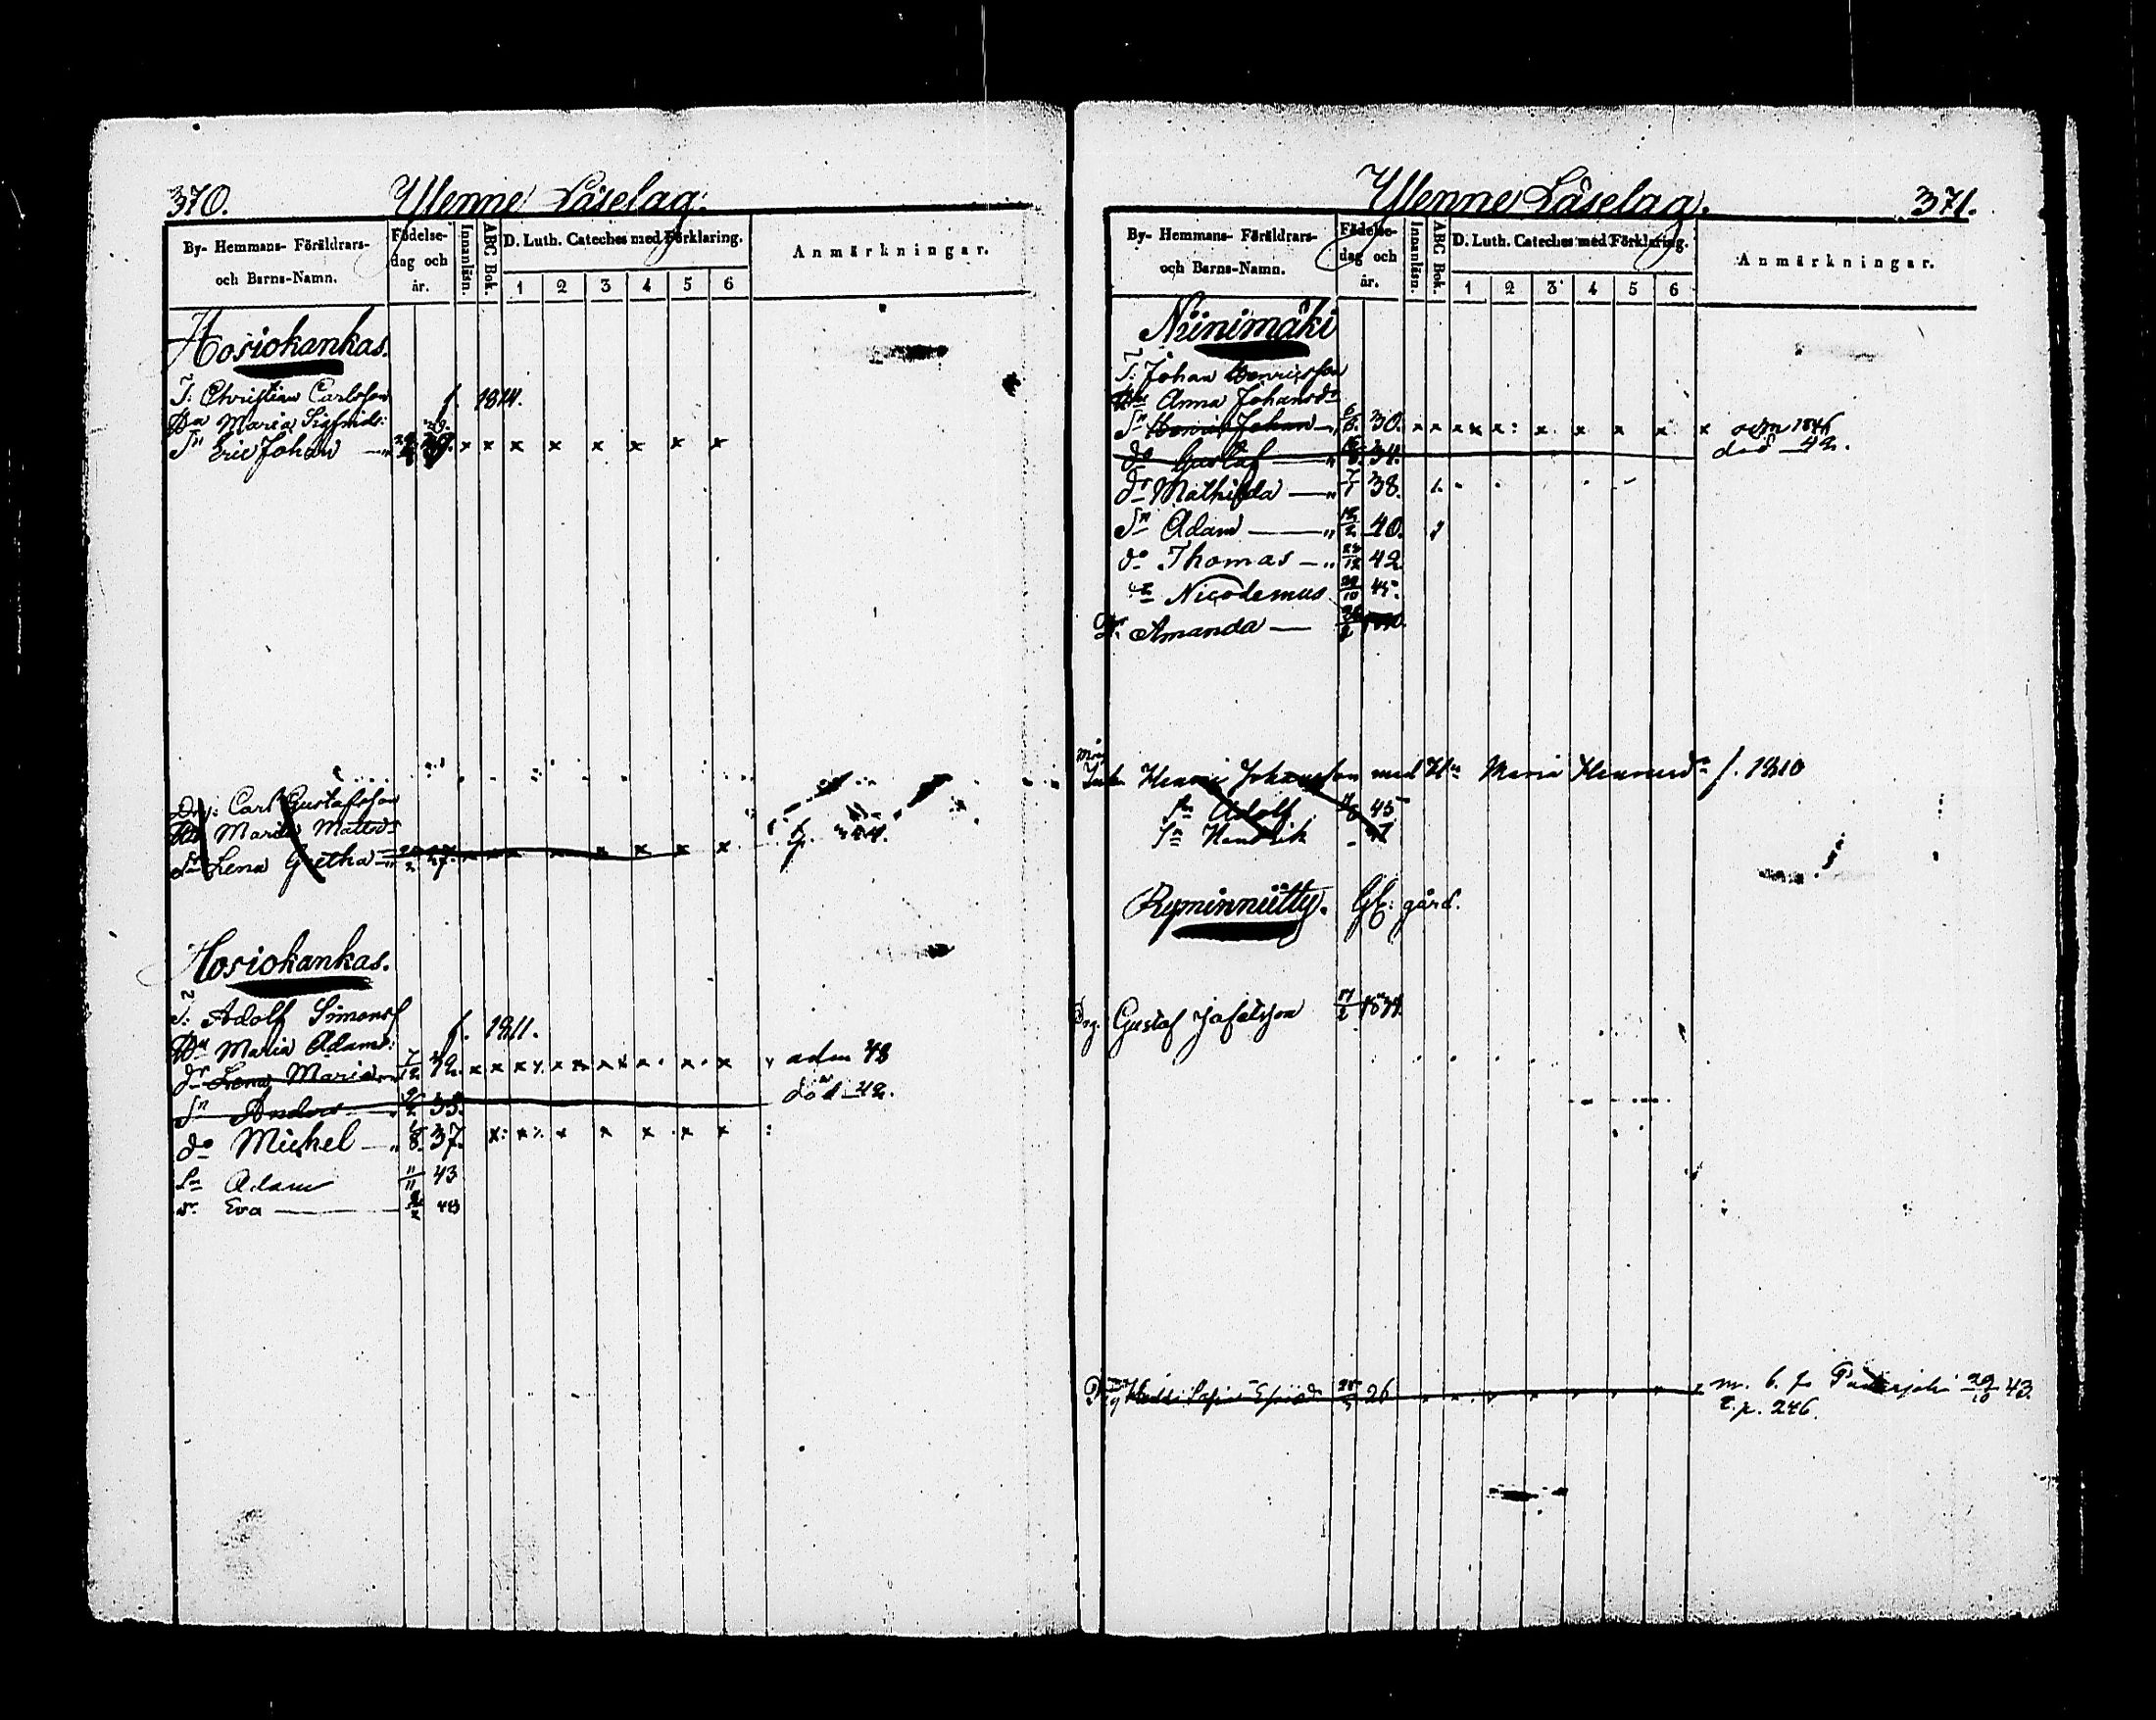 370.
Ylenne Läselag.
By- Hemmans- Föräldrars- och Barns-Namn.
Födelse- dag och år.
Innanläsn.
ABC Bok.
D. Luth. Cateches med Förklaring.
1 2 3 4 5 6
Anmärkningar.
Hosiokankas.
T. Christian Carlsson f. 1814.
Hu Maria Sigfrids:
Sn Eric Johan 39. x x x x x x x x
Drg: Carl Gustafsson
Hu Maria Mattsdr
Dr Lena Gretha 27. x x x x
Hosiokankas.
T. Adolf Simonsf f. 1811.
Hu Maria Adamd:
dr Lena Maria 7/12 32. x x x x x x x x adm 48
Sn Anders 35. död 42.
do Michel 37. x x x x x x x
Sn Adam 11/11 43
dr Eva 48
371.
Ylenne Läselag.
By- Hemmans- Föräldrars- och Barns-Namn.
Födelse- dag och år.
Innanläsn.
ABC Bok.
D. Luth. Cateches med Förklaring.
1 2 3 4 5 6
Anmärkningar.
Niinimäki
T. Johan Henricsson
Hu Anna Johansdr
Sn Henric Johan 30. x x x x x x x x x x adm 1846
do Gustaf 34. död 42.
dr Mathilda 7/1 38.
Sn Adam 40.
do Thomas 42
Nicodemus 45.
Dr Amanda
Henric Johansson med Hu Maria Henricsdr f. 1810
Sn Adolf 45
Sn Hendrik 47
Ryminniitty. gård.
Drg. Gustaf
26 m. b. f. 29/10 43.
p. 246.